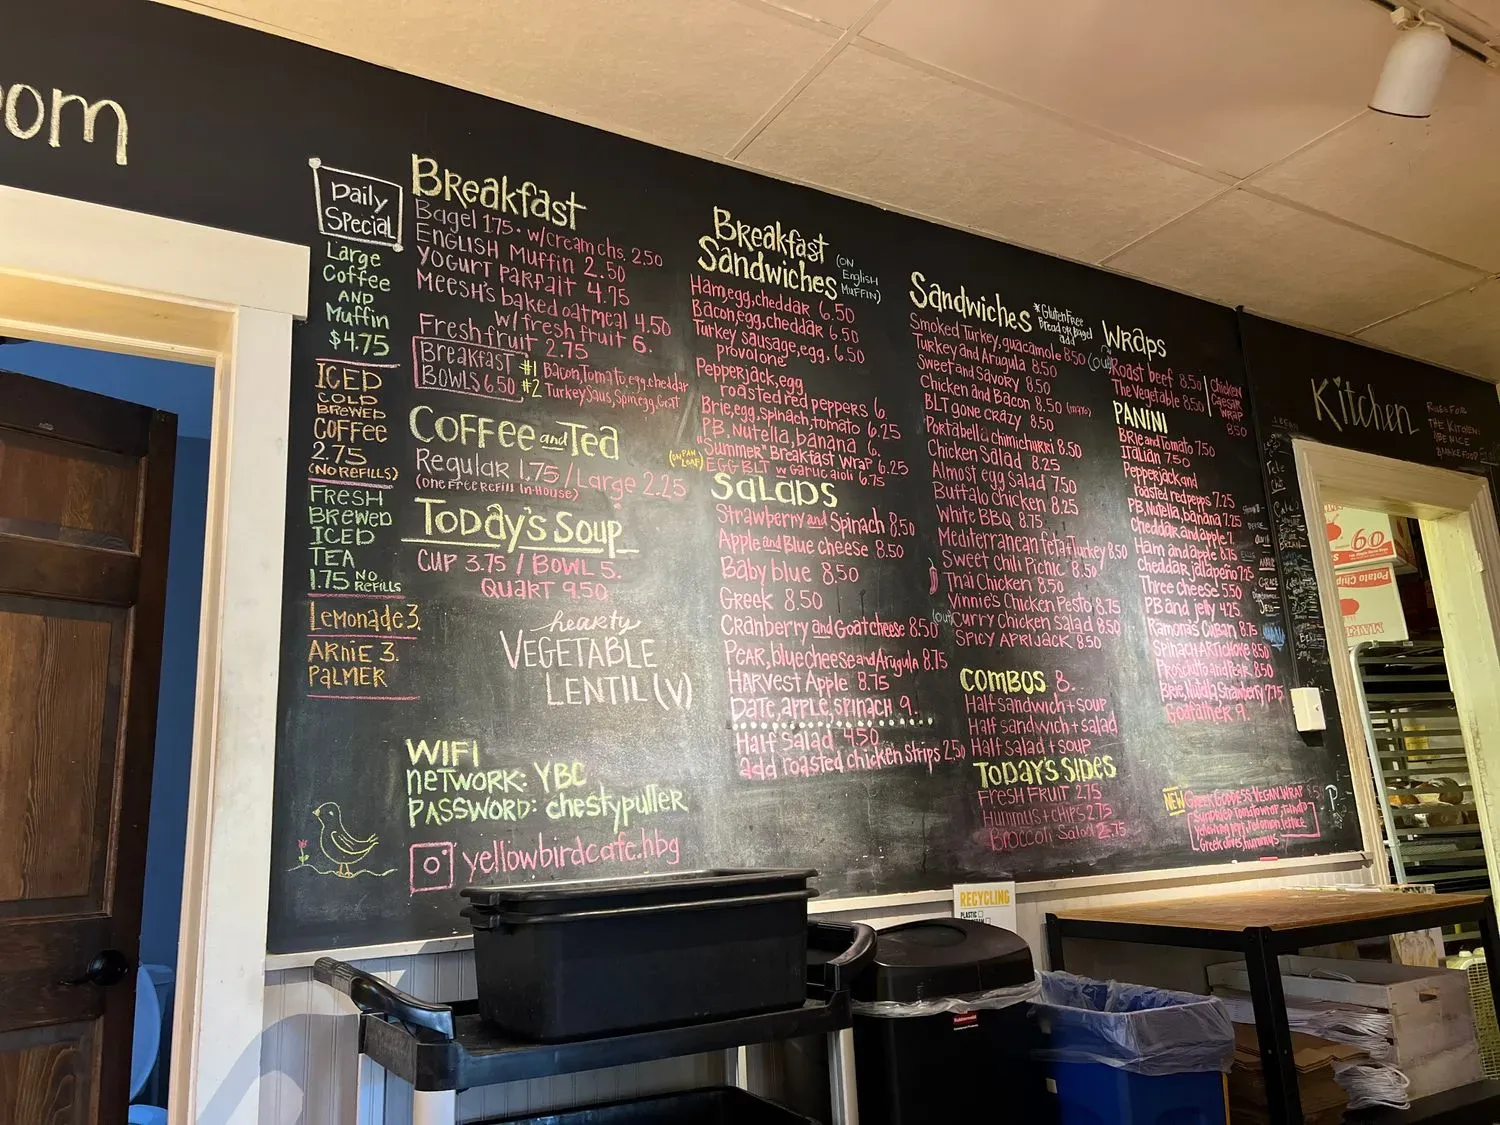 oom
Daily
Special
Large
Coffee
AND
Muffin
$4.75
ICED
COLD
BREWED
COFFEE
2.75
(NO REFILLS)
FRESH
BREWED
ICED
TEA
1.75 NO REFILLS
Lemonade 3.
ARNIE 3.
PALMER
Breakfast
Bagel 1.75 • w/cream chs. 2.50
ENGLISH Muffin 2.50
YOGURT PARFAIT 4.75
MEESH'S baked oatmeal 4.50
w/ fresh fruit 6.
Fresh fruit 2.75
Breakfast #1 Bacon, Tomato, egg, cheddar
BOWLS 6.50 #2 Turkey Saus, Spin, egg, Goat
COFFEE and TEA
Regular 1.75 / Large 2.25
(ONE FREE REFILL IN-HOUSE)
TODAY'S SOUP
CUP 3.75 / BOWL 5.
QUART 9.50
hearty
VEGETABLE
LENTIL (V)
WIFI
NETWORK: YBC
PASSWORD: chestypuller
yellowbirdcafe.hbg
Breakfast
Sandwiches
(ON
English
MuFFIN)
Ham, egg, cheddar 6.50
Bacon, egg, cheddar 6.50
Turkey sausage, egg, 6.50
provolone
Pepperjack, egg
roasted red peppers 6.
Brie, egg, spinach, tomato 6.25
PB, Nutella, banana 6.
"Summer" Breakfast Wrap 6.25
EGG BLT w Garlic aioli 6.75
SALADS
Strawberry and Spinach 8.50
Apple and Blue cheese 8.50
Baby blue 8.50
Greek 8.50
Cranberry and Goat cheese 8.50
PEAR, blue cheese and Arugula 8.75
HARVEST Apple 8.75
DATE, apple, spinach 9.
Half Salad 4.50
add roasted chicken strips 2.50
Sandwiches
*Gluten Free
Bread or Bagel
add
Smoked Turkey, guacamole 8.50
Turkey and Arugula 8.50
Sweet and Savory 8.50
Chicken and Bacon 8.50 (mayo)
BLT gone crazy 8.50
Portabella chimichurri 8.50
Chicken Salad 8.25
Almost egg Salad 7.50
Buffalo chicken 8.25
White BBQ 8.75
Mediterranean feta + Turkey 8.50
Sweet Chili Picnic 8.50
Thai Chicken 8.50
Vinnie's Chicken Pesto 8.75
(out) Curry Chicken Salad 8.50
SPICY APRIJACK 8.50
COMBOS 8.
Half sandwich + soup
Half sandwich + salad
Half salad + soup
TODAY'S SIDES
FRESH FRUIT 2.75
HUMMUS + CHIPS 2.75
BROCCOLI SALAD 2.75
WRAPS
(out) Roast beef 8.50
The Vegetable 8.50
Chicken
Caesar
WRAP
8.50
PANINI
BRIE and Tomato 7.50
Italian 7.50
Pepperjack and
roasted red pepps 7.25
PB, Nutella, banana 7.25
Cheddar and apple 7.
Ham and apple 8.75
Cheddar, jalapeño 7.25
Three Cheese 5.50
PB and jelly 4.25
Ramona's Cuban 8.75
Spinach Artichoke 8.50
Prosciutto and Pear 8.50
Brie, Nutella, Strawberry 7.75
Goatfather 9.
NEW GREEK GODDESS VEGAN WRAP
Greek olives, hummus
Kitchen
RULES FOR
THE KITCHEN:
1) BE NICE
2) MAKE FOOD
60
Potato Chips
RECYCLING
PLASTIC